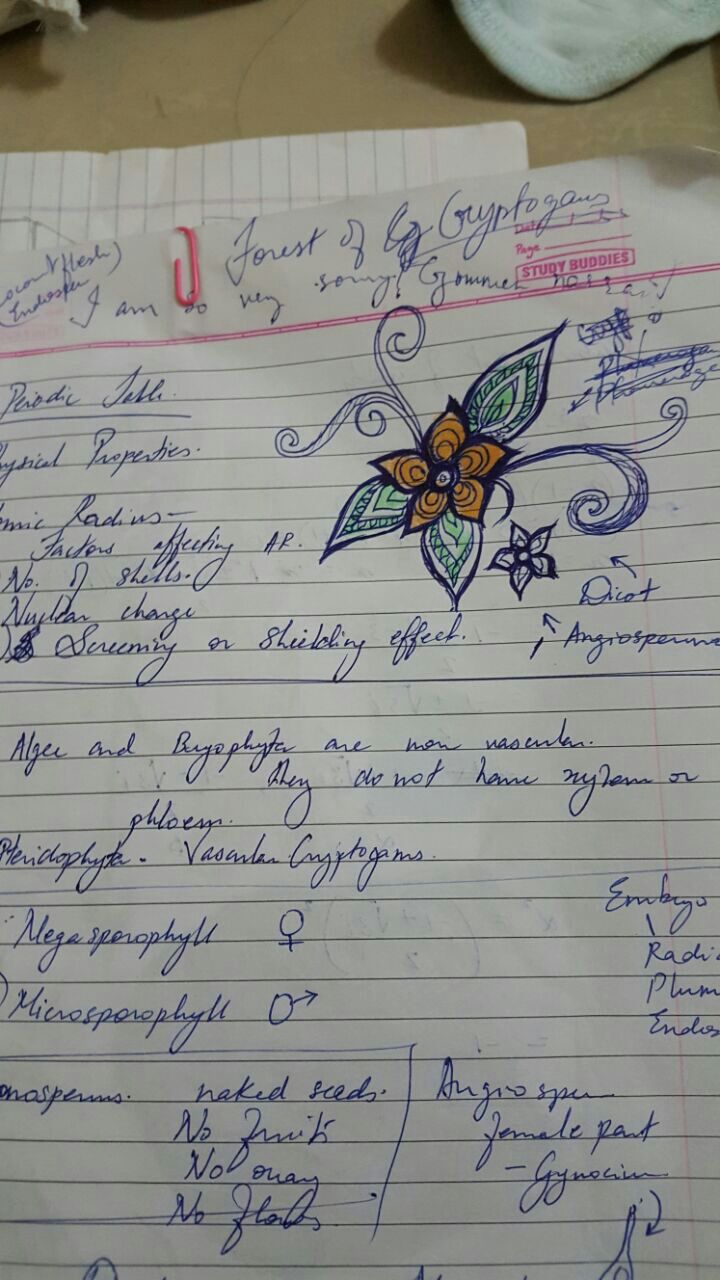 Forest of Cryptogams
Date
Page
STUDY BUDDIES
Endosper
I am so very sorry! Gommen
Periodic Table.
ysical Properties.
omic Radius -
Factors affecting AR.
No. of shells.
Nuclear charge
Screening or Shielding effect.
Dicot
Angiosperms
Algee and Bryophyta are non vascular.
They do not have xylem or
phloem.
Pteridophyta - Vascular Cryptogams.
Embryo
Megasporophyll ♀
Radi
Microsporophyll ♂
Plum
Endos
nosperms. naked seeds.
No fruit
No ovary
Angiosper
female part
- Gynocium